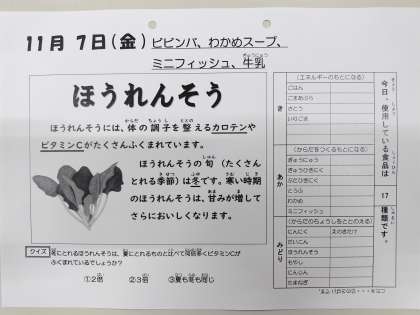 11月 7日(金) ビビンバ、わかめスープ、
ミニフィッシュ、牛乳
ほうれんそう
ほうれんそうには、体の調子を整えるカロテンや
ビタミンCがたくさんふくまれています。
ほうれんそうの旬(たくさん
とれる季節)は冬です。寒い時期
のほうれんそうは、甘みが増して
さらにおいしくなります。
クイズ 冬にとれるほうれんそうは、夏にとれるものと比べて何倍多くビタミンCが
ふくまれているでしょうか?
①2倍 ②3倍 ③夏も冬も同じ
今日、使用している食品は 17 種類です。
き
(エネルギーのもとになる)
ごはん
ごまあぶら
さとう
いりごま
あか
(からだをつくるもとになる)
ぎゅうにゅう
ぎゅうひきにく
ぶたひきにく
とうふ
わかめ
ミニフィッシュ
みどり
(からだのちょうしをととのえる)
にんにく えのきだけ
だいこん
ほうれんそう
もやし
にんじん
たまねぎ